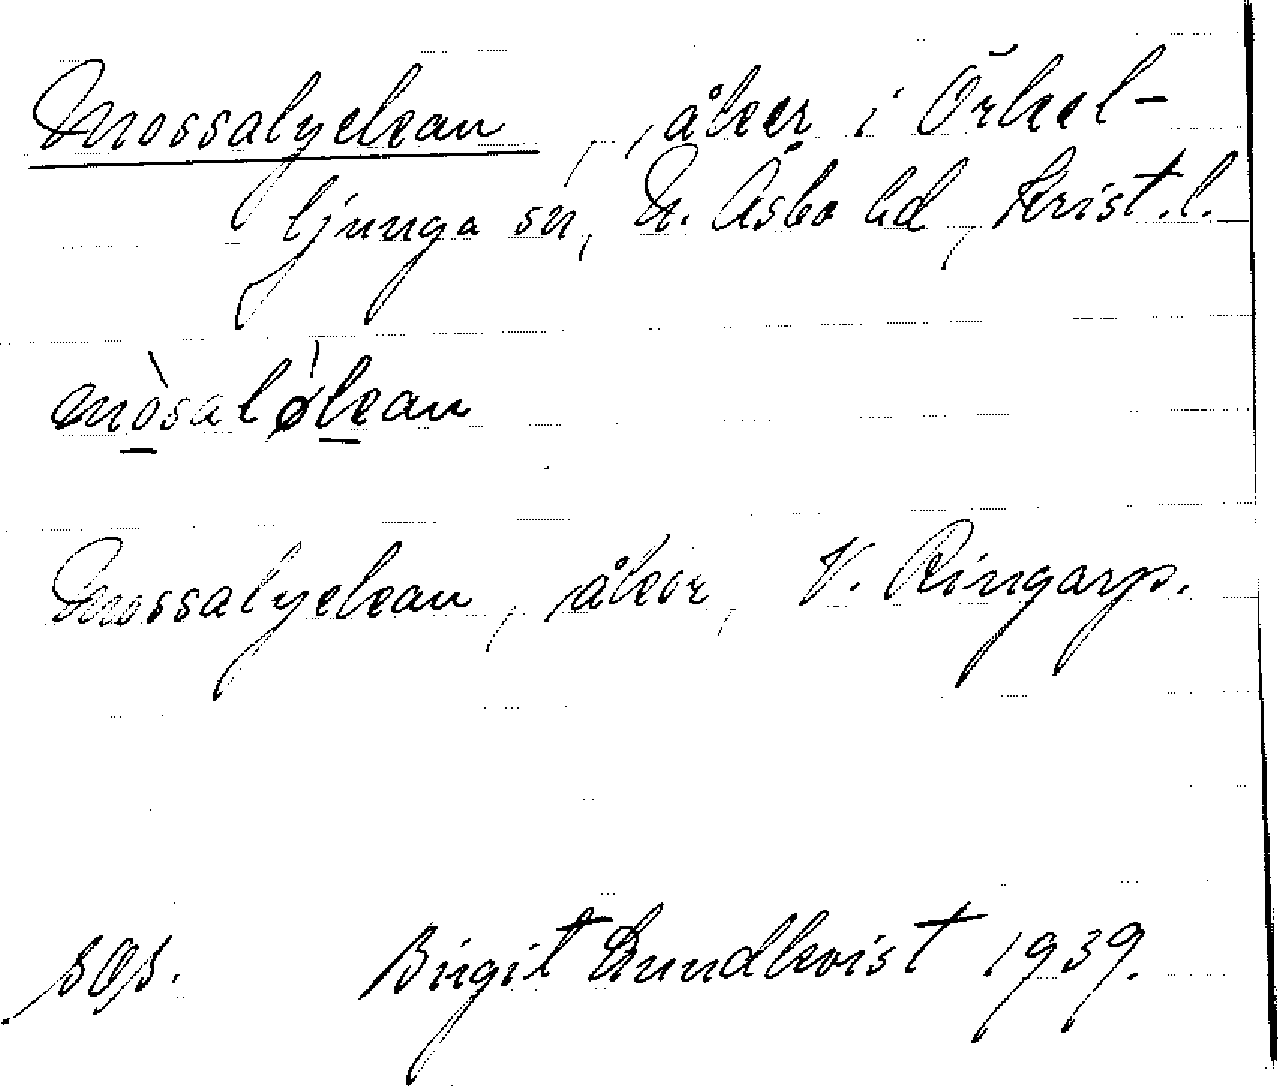 Mossalyckan, åker i Örkel-
ljunga sn, N. Åsbo hd, Krist. l.
mòsalø̀kan
Mossalyckan, åker, V. Ringarp.
Birgit Lundkvist 1939.